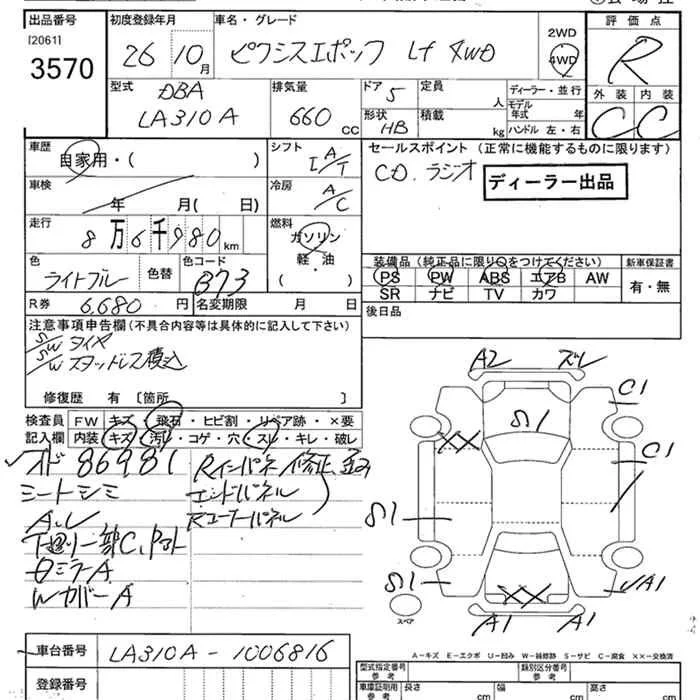 出品番号 初度登録年月 車名・グレード 評価点
[2061]
3570
26 10月 ピクシスエポック Lf 4WD
2WD
4WD
R
型式 DBA 排気量 ドア 5 定員 人 ディーラー・並行
LA310A 660 cc 形状 HB 積載 kg
モデル年式 年
ハンドル 左・右
外装 内装
C C
車歴 自家用・( ) シフト I A/T
セールスポイント (正常に機能するものに限ります)
CD. ラジオ
ディーラー出品
車検 年 月( 日) 冷房 A/C
走行 8万6千980km 燃料 ガソリン
軽・油
( )
色 ライトブルー 色替 色コード B73
装備品 (純正品に限り○をつけてください) 新車保証書
PS PW ABS エアB AW 有・無
SR ナビ TV カワ
R券 6,680円 名変期限 月 日
後日品
注意事項申告欄 (不具合内容等は具体的に記入して下さい)
S/W タイヤ
S/W スタッドレス積込
修復歴 有 [箇所 ]
検査員 FW キズ・飛石・ヒビ割・リペア跡・×要
記入欄 内装 キズ・汚・コゲ・穴・スレ・キレ・破レ
オド 86981 Rインパネ修正、
シートシミ エンドパネル
A.レ Rコーナーパネル
下廻リ一部C.
ミラーA
WカバーA
A2 ズレ
C1
S1
XX
C1
S1
S1
XX
A1
A1 A1
スペア
車台番号 LA310A-1006816
登録番号
A-キズ E-エクボ U-凹み W-補修跡 S-サビ C-腐食 XX-交換済
型式指定番号 参考 類別区分番号 参考
車庫証明用 参考 長さ cm 幅 cm 高さ cm